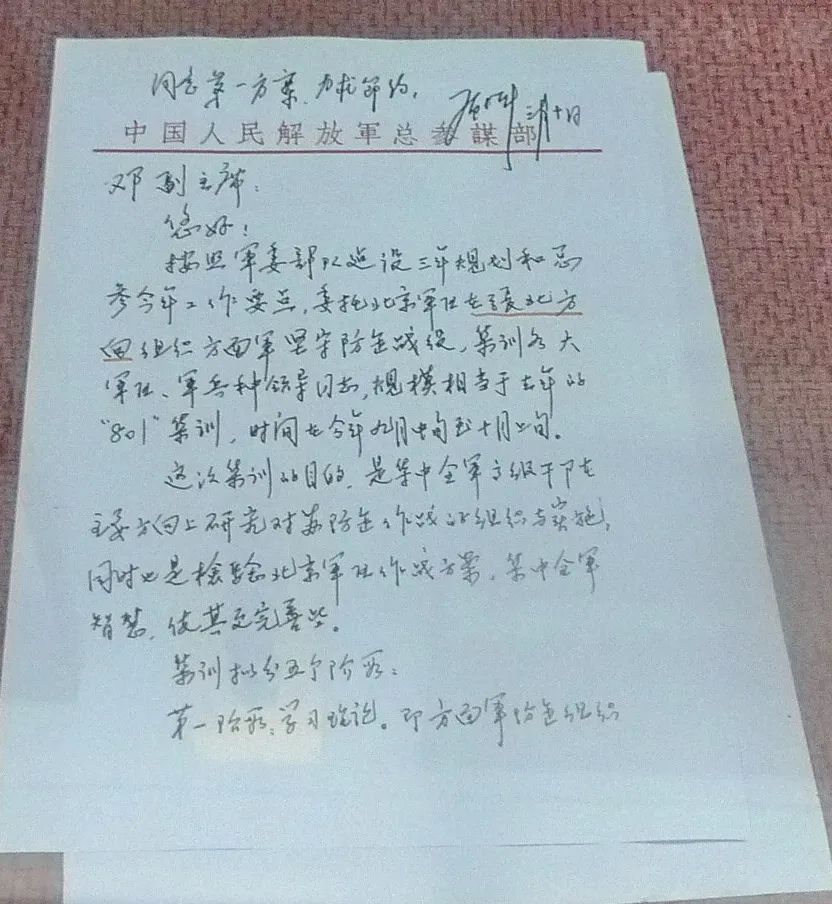 同意第一方案，力求节约。
邓小平 三月十日
中国人民解放軍总参謀部
邓副主席：
您好！
按照军委部队建设三年规划和总
参今年工作要点，委托北京军区在张北方
向组织方面军坚守防御战役，集训各大
军区、军兵种领导同志，规模相当于去年的
“801”集训，时间在今年九月中旬至十月上旬。
这次集训的目的，是集中全军高级干部在
主要方向上研究对苏防御作战的组织与实施，
同时也是检验北京军区作战方案，集中全军
智慧，使其更完善些。
集训拟分五个阶段：
第一阶段：学习理论。即方面军防御组织